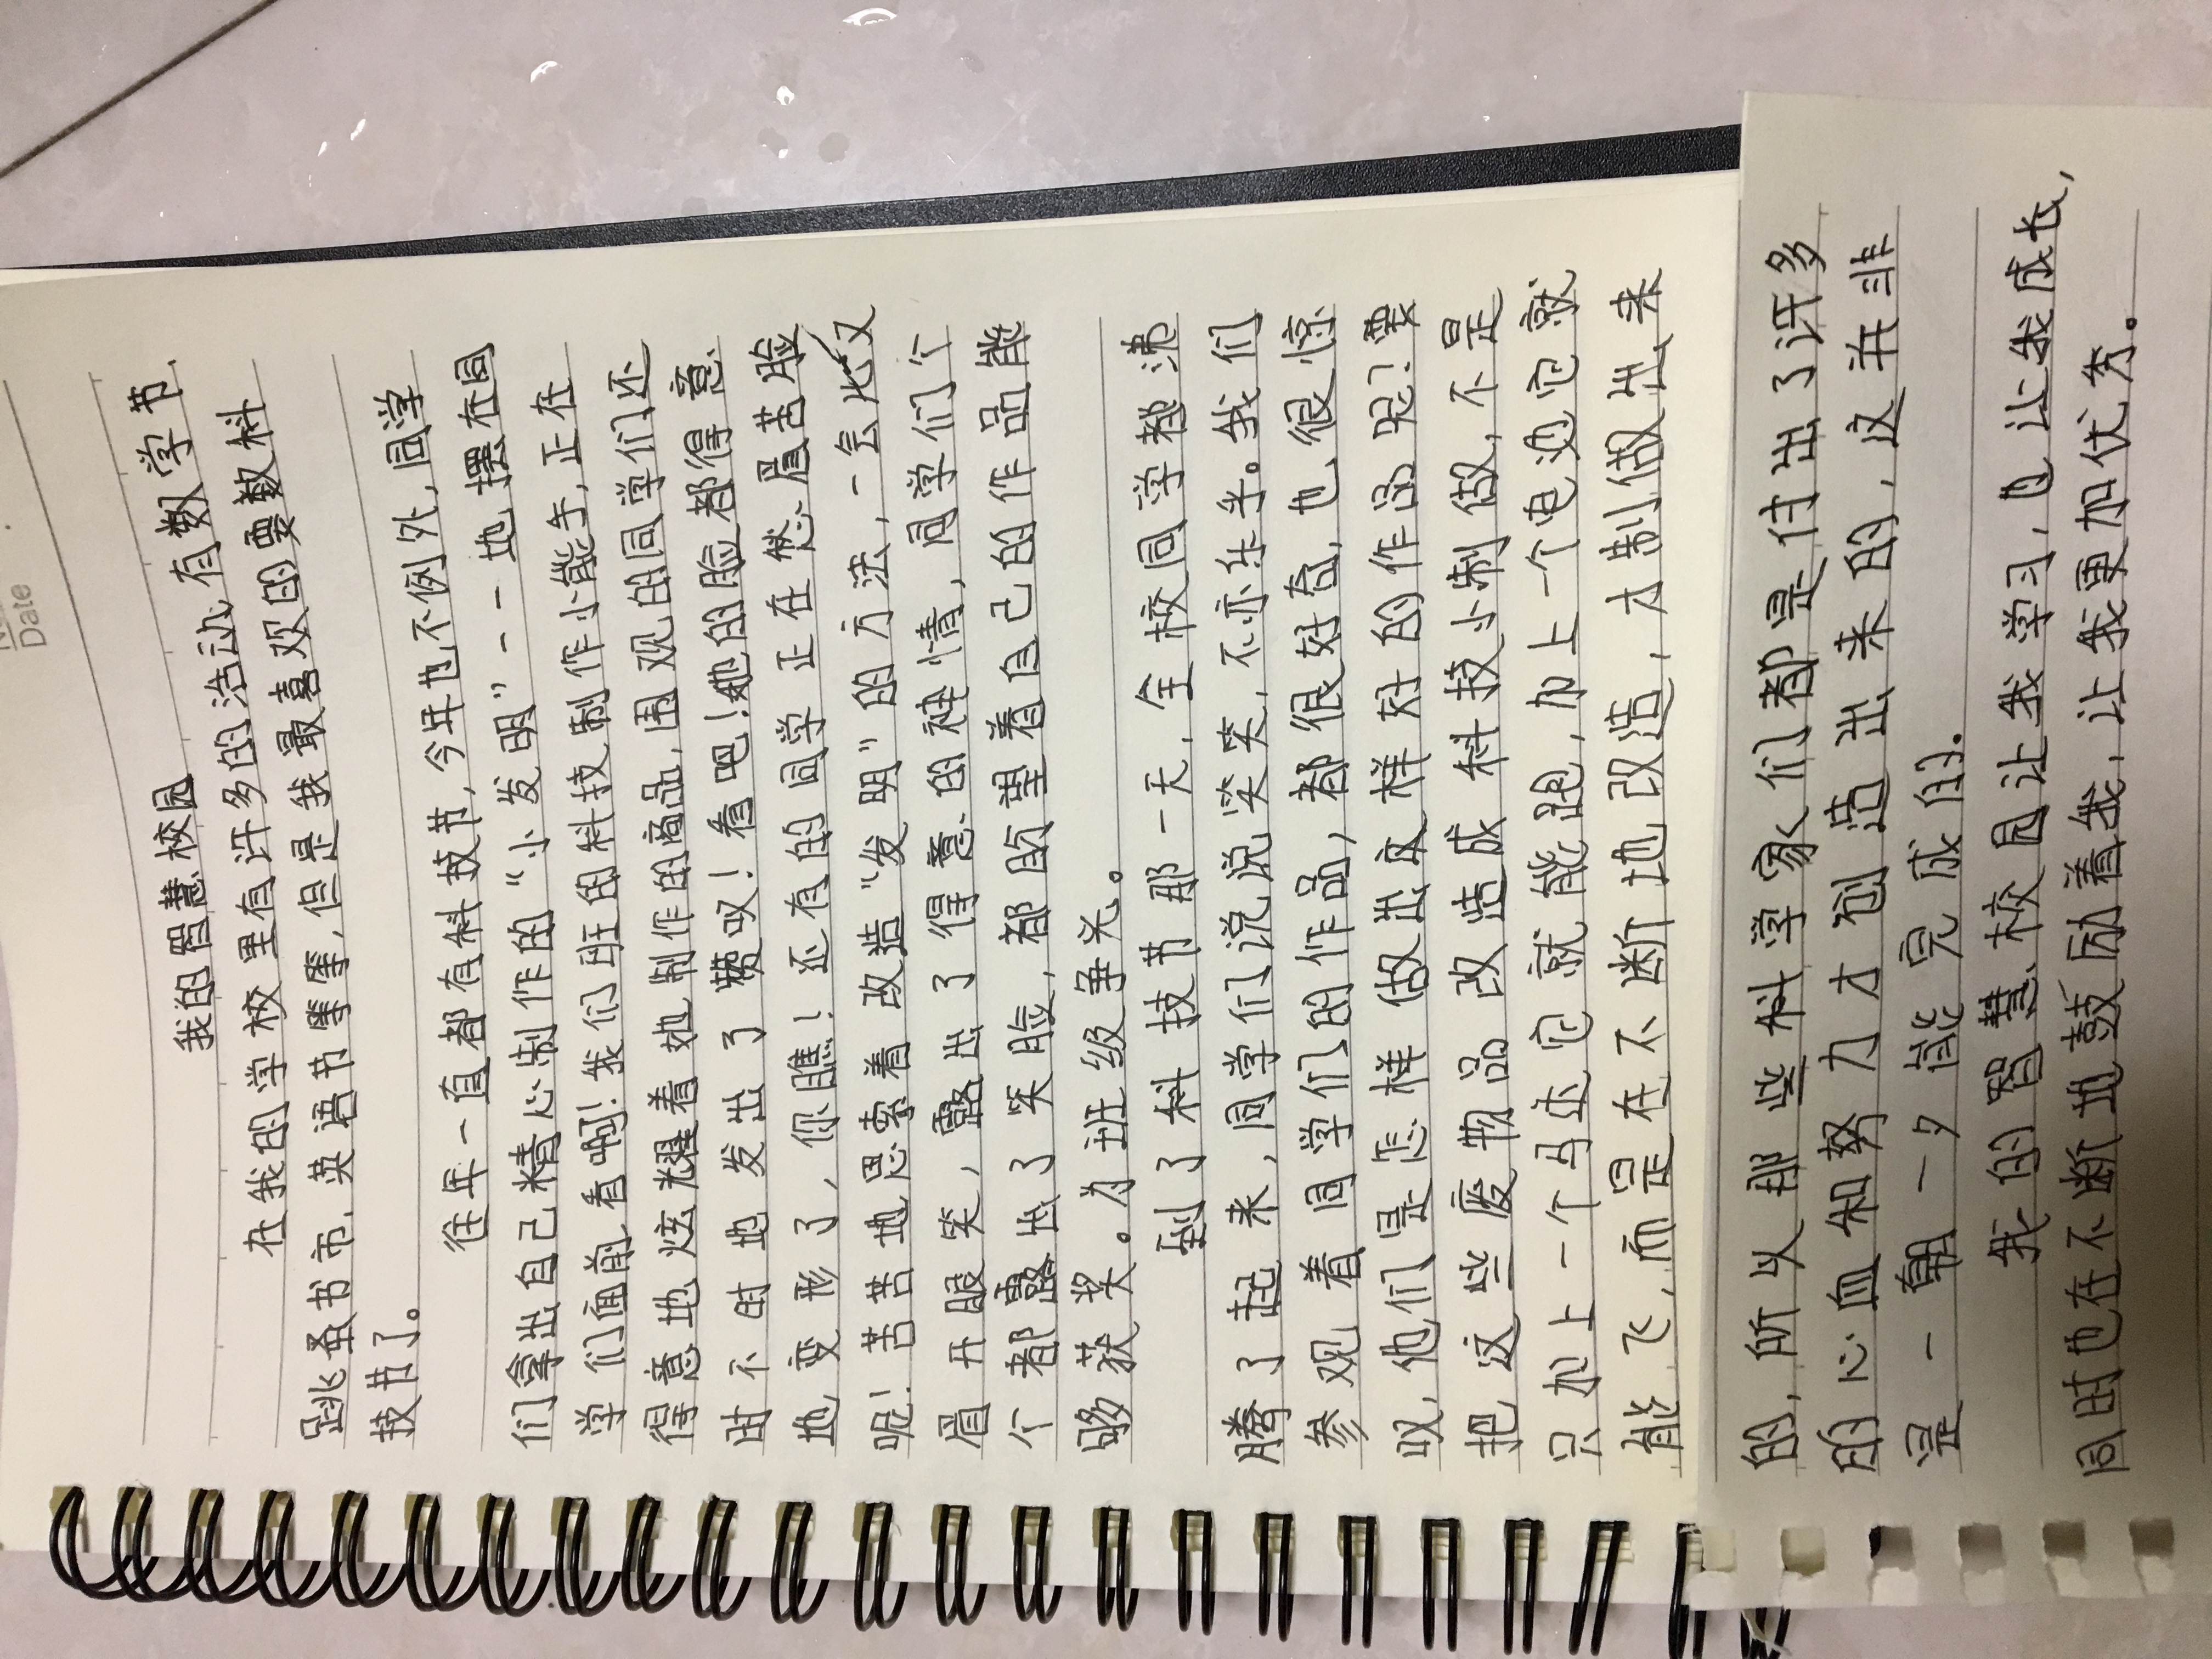 Date
我的智慧校园
在我的学校里有许多的活动,有数学节.
跳蚤书市、英语节等等,但是我最喜欢的要数科
技节了。
往年一直都有科技节,今年也不例外,同学
们拿出自己精心制作的“小发明”一一地摆在同
学们面前,看啊!我们班的科技制作小能手,正在
得意地炫耀着她制作的商品,围观的同学们还
时不时地发出了赞叹!看吧!她的脸都得意
地变形了,你瞧!还有的同学正在愁眉苦脸
呢!苦苦地思索着改造“发明”的方法,一会儿又
眉开眼笑,露出了得意的神情,同学们个
个都露出了笑脸,都盼望着自己的作品能
够获奖。为班级争光。
到了科技节那一天,全校同学都沸
腾了起来,同学们说说笑笑,不亦乐乎。我们
参观着同学们的作品,都很好奇,也很惊
叹,他们是怎样做出这样好的作品呢?要
把这些废物品改造成科技小制做,不是
只加上一个马达它就能跑,加上一个电池它就
能飞,而是在不断地改造,才制做出来
的,所以那些科学家们都是付出了许多
的心血和努力才创造出来的,这并非
是一朝一夕能完成的.
我的智慧校园让我学习,也让我成长,
同时也在不断地鼓励着我,让我更加优秀。